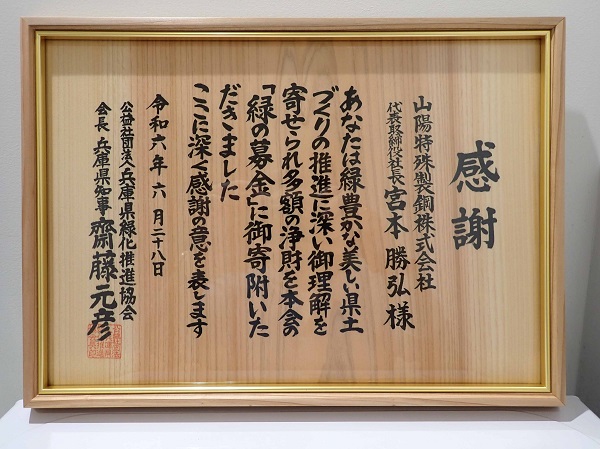 感謝
山陽特殊製鋼株式会社
代表取締役社長 宮本勝弘様
あなたは緑豊かな美しい県土
づくりの推進に深い御理解を
寄せられ多額の浄財を本会の
「緑の募金」に御寄附いた
だきました
ここに深く感謝の意を表します
令和六年六月二十八日
公益社団法人兵庫県緑化推進協会
会長 兵庫県知事 齋藤元彦